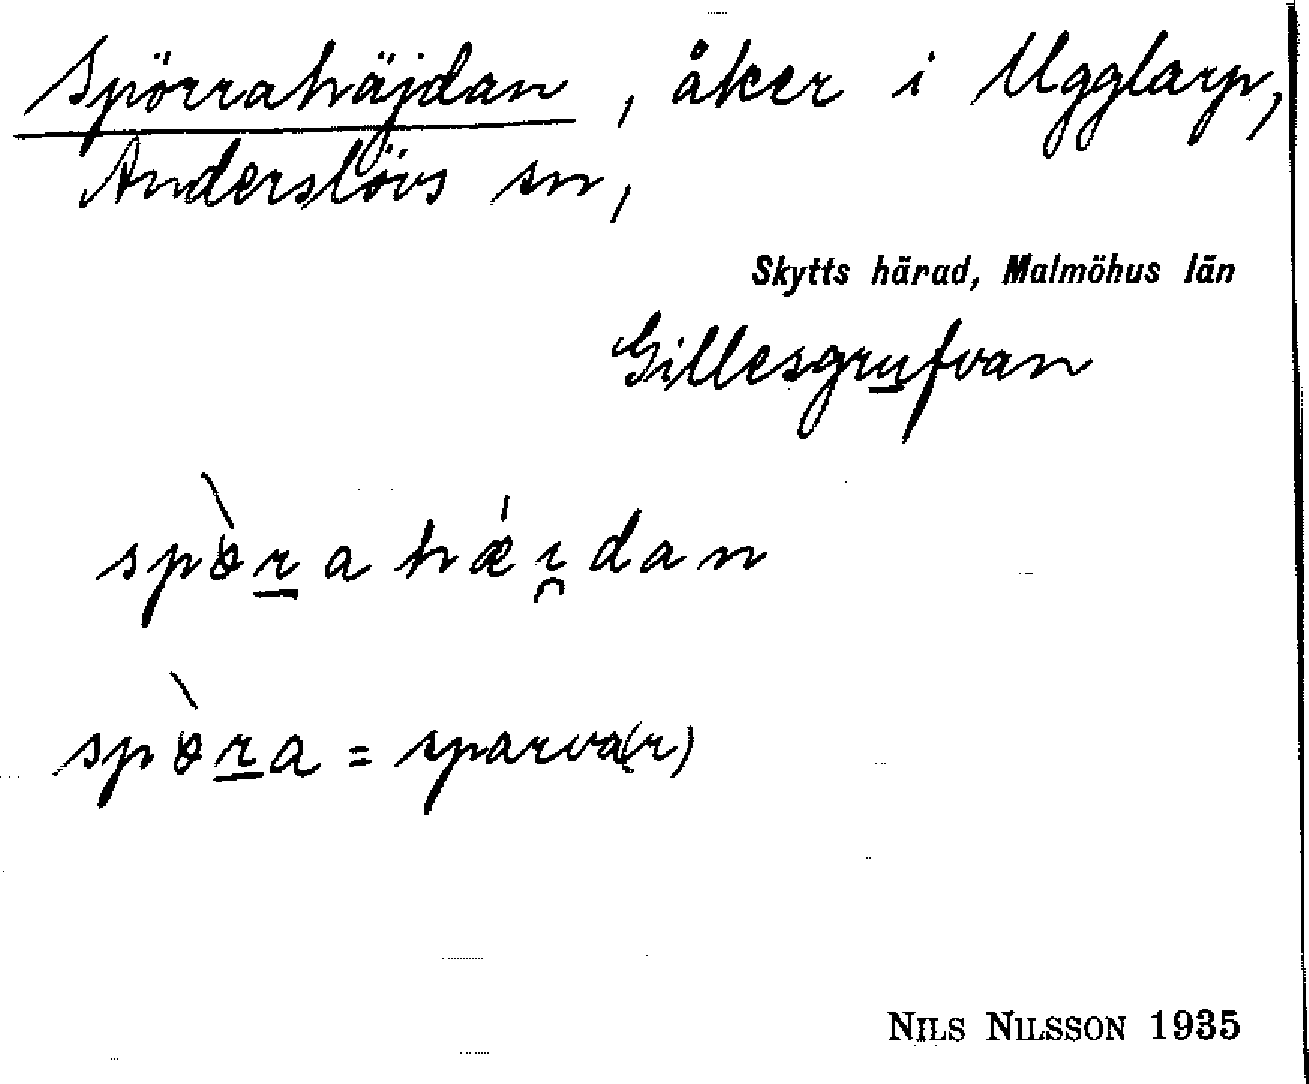 Spörrahäjdan, åker i Ugglarp,
Anderslövs sn,
Skytts härad, Malmöhus län
Gillesgrufvan
spɵ̀ra hǽi̯dan
spɵ̀ra = sparva(r)
NILS NILSSON 1935